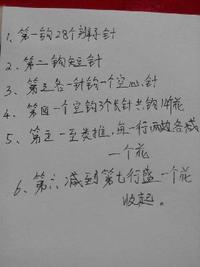 1、第一钩28个辫子针
2、第二钩短针
3、第三各一针钩一个空心针
4、第四一个空钩3个长针共钩14花
5、第五一至类推,每一行两边各减
一个花
6、第六减到第七行盛一个花
收起。